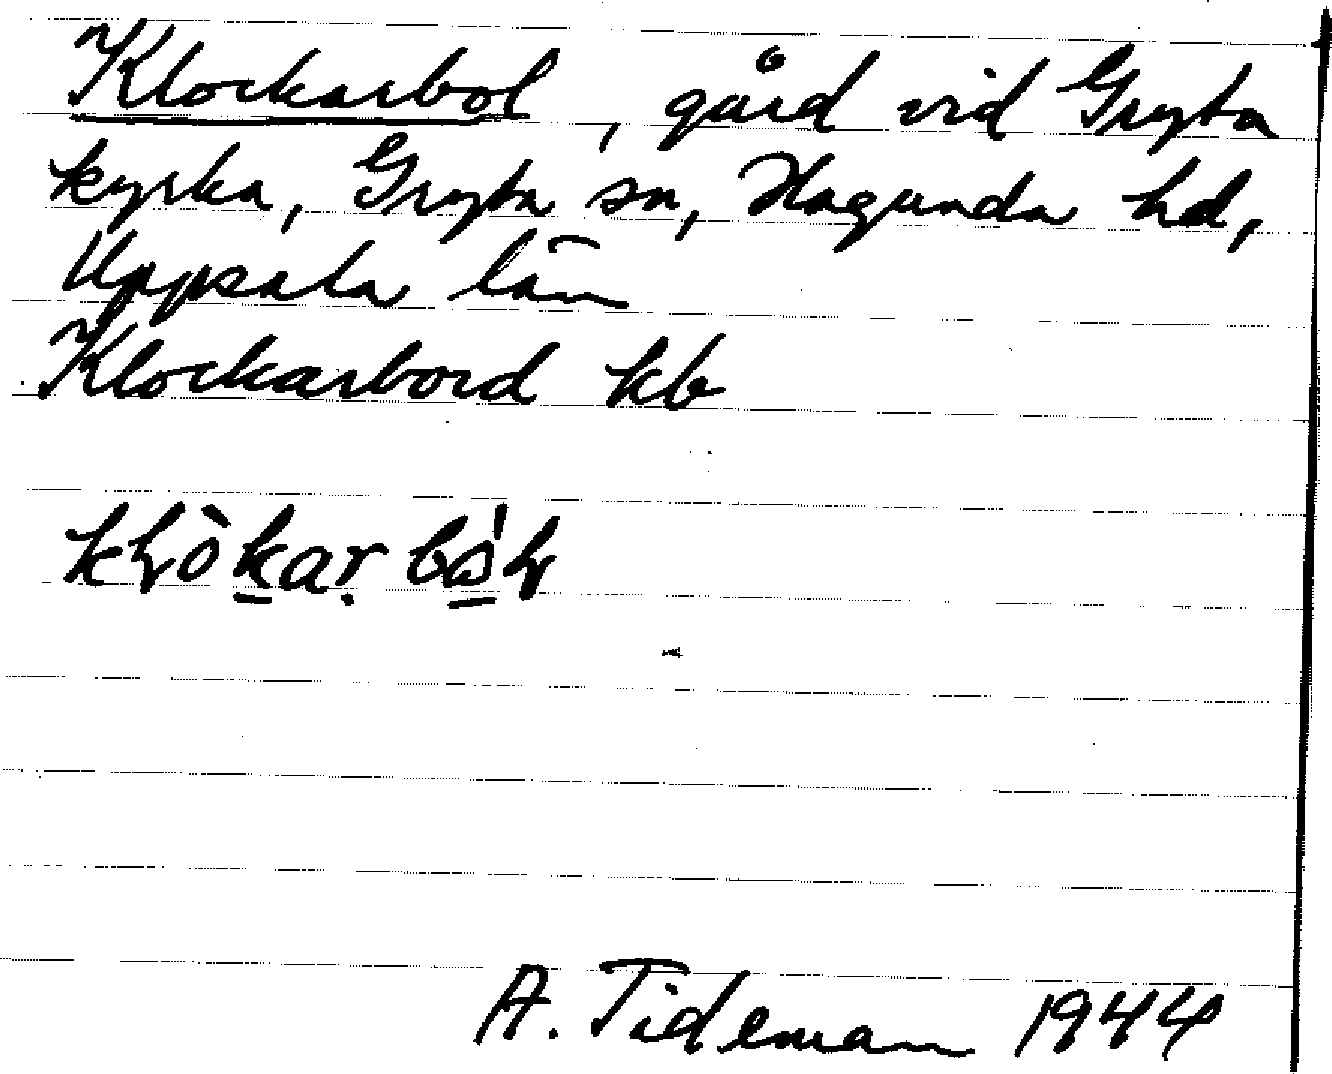 Klockarbol, gård vid Gryta
kyrka, Gryta sn, Hagunda hd,
Uppsala län
Klockarbord kb
A. Tideman 1944